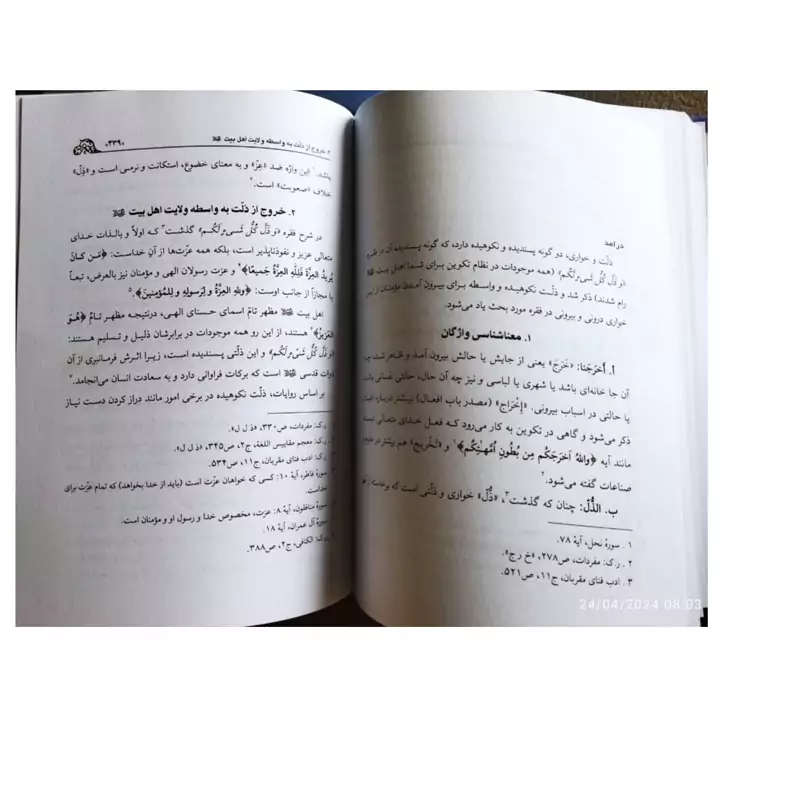 درآمد
ذلّت و خواری، دو گونه پسندیده و نکوهیده دارد، که گونه پسندیده آن در فقره
«وَ ذَلَّ کُلُّ شَیءٍ لَکُم» (همه موجودات در نظام تکوین برای شما اهل بیت
رام شدند) ذکر شد و ذلّت نکوهیده و واسطه برای بیرون آمدن مؤمنان از بس
خواری درونی و بیرونی در فقره مورد بحث یاد می‌شود.
۱. معناشناسی واژگان
أ. أخرَجنا: «خَرَجَ» یعنی از جایش یا حالش بیرون آمد و ظاهر شد، چه
آن جا خانه‌ای باشد یا شهری یا لباسی و نیز چه آن حال، حالتی نفسانی باشد
یا حالتی در اسباب بیرونی. «إخراج» (مصدر باب افعال) بیشتر درباره
ذکر می‌شود و گاهی در تکوین به کار می‌رود که فعل خدای متعالی است
مانند آیه ﴿وَاللهُ اَخرَجَکُم مِن بُطُونِ اُمَّهٰتِکُم﴾۱ و «تخریج» هم بیشتر در علوم
صناعات گفته می‌شود.۲
ب. الذُّلّ: چنان که گذشت۳، «ذُلّ» خواری و ذلّتی است که برخاسته از
۱ . سورهٔ نحل، آیهٔ ۷۸.
۲ . ر.ک: مفردات، ص۲۷۸، «خ ر ج».
۳ . ادب فنای مقربان، ج۱۱، ص۵۲۱.
24/04/2024 08:03
۲. خروج از ذلّت به واسطه ولایت اهل بیت «۳۳۹»
باشد.۱ این واژه ضد «عِزّ» و به معنای خضوع، استکانت و نرمی است و «ذِلّ»
خلاف «صعوبت» است.۲
۲. خروج از ذلّت به واسطه ولایت اهل بیت
در شرح فقره «وَ ذَلَّ کُلُّ شَیءٍ لَکُم» گذشت۳ که اولاً و بالذات خدای
متعالی عزیز و نفوذناپذیر است، بلکه همه عزّت‌ها از آنِ خداست: ﴿مَن کانَ
یُریدُ العِزَّةَ فَلِلّهِ العِزَّةُ جَمیعًا﴾۴ و عزت رسولان الهی و مؤمنان نیز بالعرض، تبعاً
یا مجازاً از جانب اوست: ﴿وللهِ العِزَّةُ و لِرَسولِهِ و لِلمُؤمِنینَ﴾.۵
اهل بیت مظهر تامّ اسمای حسنای الهی، درنتیجه مظهر تامّ ﴿هُوَ
العَزیزُ﴾۶ هستند، از این رو همه موجودات در برابرشان ذلیل و تسلیم هستند:
«وَ ذَلَّ کُلُّ شَیءٍ لَکُم» و این ذلّتی پسندیده است، زیرا اثرش فرمانبری از آن
ذوات قدسی است که برکات فراوانی دارد و به سعادت انسان می‌انجامد.
بر اساس روایات، ذلّت نکوهیده در برخی امور مانند دراز کردن دست نیاز
۱ . ر.ک: مفردات، ص۳۳۰، «ذ ل ل».
۲ . ر.ک: معجم مقاییس اللغة، ج۲، ص۳۴۵، «ذ ل ل».
۳ . ر.ک: ادب فنای مقربان، ج۱۱، ص۵۳۴.
۴ . سورهٔ فاطر، آیهٔ ۱۰: کسی که خواهان عزّت است (باید از خدا بخواهد) که تمام عزّت برای
خداست.
۵ . سورهٔ منافقون، آیهٔ ۸: عزت، مخصوص خدا و رسول او و مؤمنان است.
۶ . سورهٔ آل عمران، آیهٔ ۱۸.
۷ . ر.ک: الکافی، ج۲، ص۳۸۸.